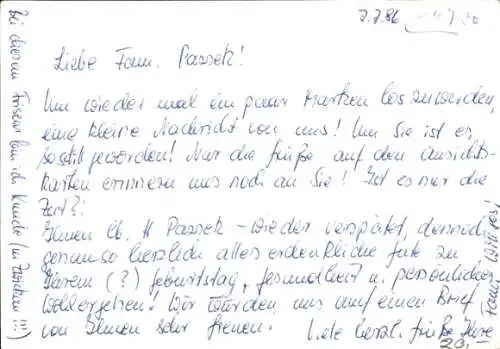 7.7.86
Liebe Fam. Passek!
Um wieder mal ein paar Marken loszuwerden,
eine kleine Nachricht von uns! Um Sie ist es
so still geworden! Nur die Grüße auf den Ansichts-
karten erinnern uns noch an Sie! Ist es nur die
Zeit?!
Ihnen lb. H Passek - wieder verspätet, dennoch
genauso herzlich alles erdenkliche Gute zu
Ihrem (?) Geburtstag, Gesundheit u. persönliches
Wohlergehen! Wir würden uns auf einen Brief
von Ihnen sehr freuen. Viele herzl. Grüße Ihre
20.-
Bei diesem Friseur bin ich Kunde (in !!!)